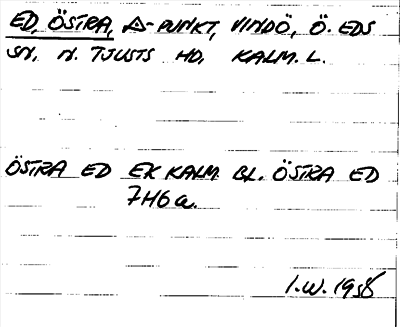 ED, ÖSTRA, △-PUNKT, VINDÖ, Ö. EDS
SN, N. TJUSTS HD, KALM. L.
ÖSTRA ED EK KALM. BL. ÖSTRA ED
7H6a.
I.W. 1958